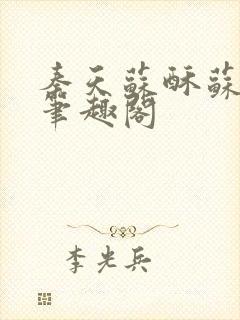 秦天蘇酥蘇
筆趣閣
李光兵